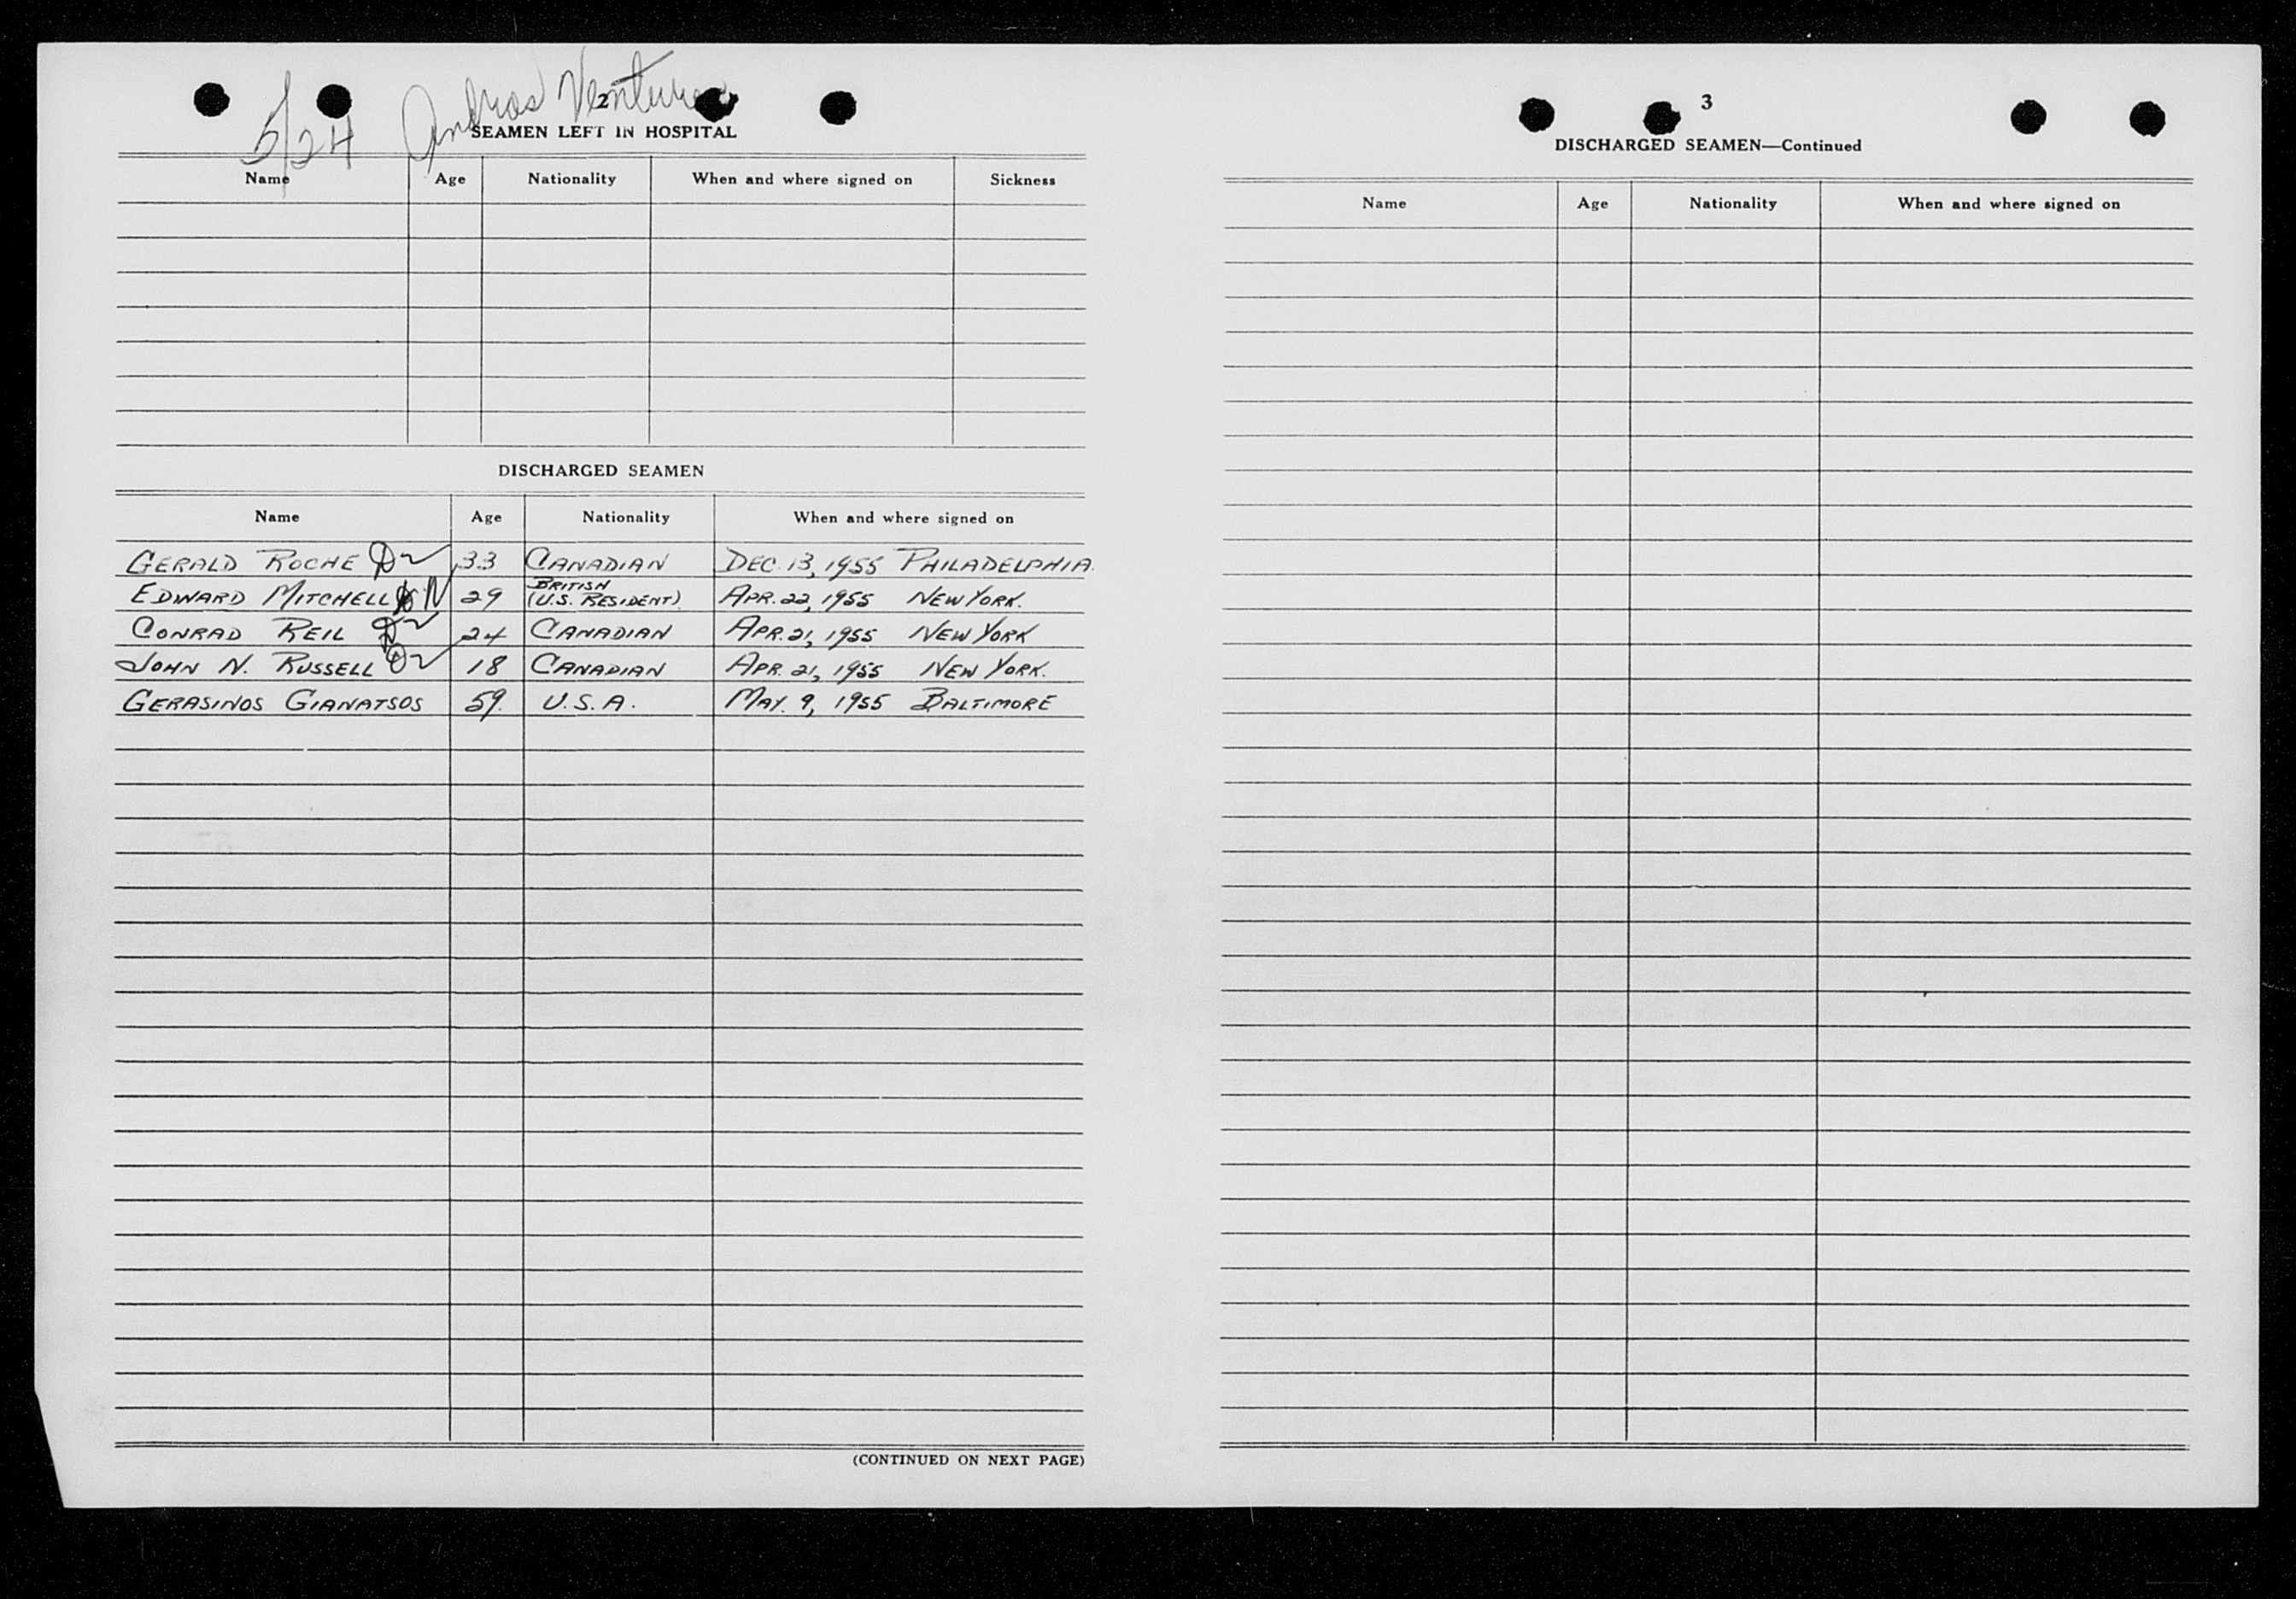 5/24 Andros Venture
2
SEAMEN LEFT IN HOSPITAL
Name Age Nationality When and where signed on Sickness
DISCHARGED SEAMEN
Name Age Nationality When and where signed on
GERALD ROCHE 33 CANADIAN DEC. 13, 1955 PHILADELPHIA.
EDWARD MITCHELL 29 BRITISH (U.S. RESIDENT) APR. 22, 1955 NEW YORK.
CONRAD REIL 24 CANADIAN APR. 21, 1955 NEW YORK
JOHN N. RUSSELL 18 CANADIAN APR. 21, 1955 NEW YORK.
GERASINOS GIANATSOS 59. U.S.A. MAY. 9, 1955 BALTIMORE
(CONTINUED ON NEXT PAGE)
3
DISCHARGED SEAMEN—Continued
Name Age Nationality When and where signed on